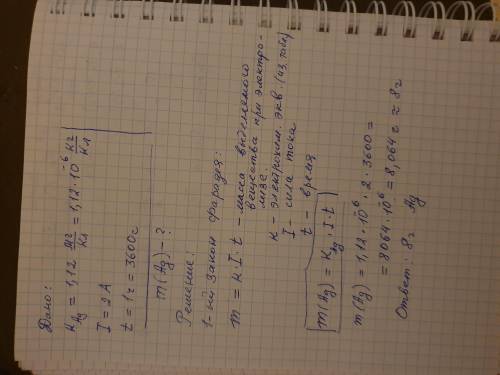 Дано:
k Ag = 1,12 мг/Кл = 1,12·10⁻⁶ кг/Кл
I = 2 А
t = 1ч = 3600с
m(Ag) - ?
Решение:
1-ый закон Фарадея:
m = k·I·t - масса выделяемого
вещества при электро-
лизе.
k - электрохим. экв. (из табл)
I - сила тока
t - время
m(Ag) = k Ag·I·t
m(Ag) = 1,12·10⁶·2·3600 =
= 8064·10⁶ = 8,064 г ≈ 8г
Ответ: 8г Ag